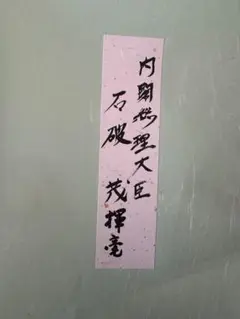 内閣総理大臣
石破 茂 揮毫